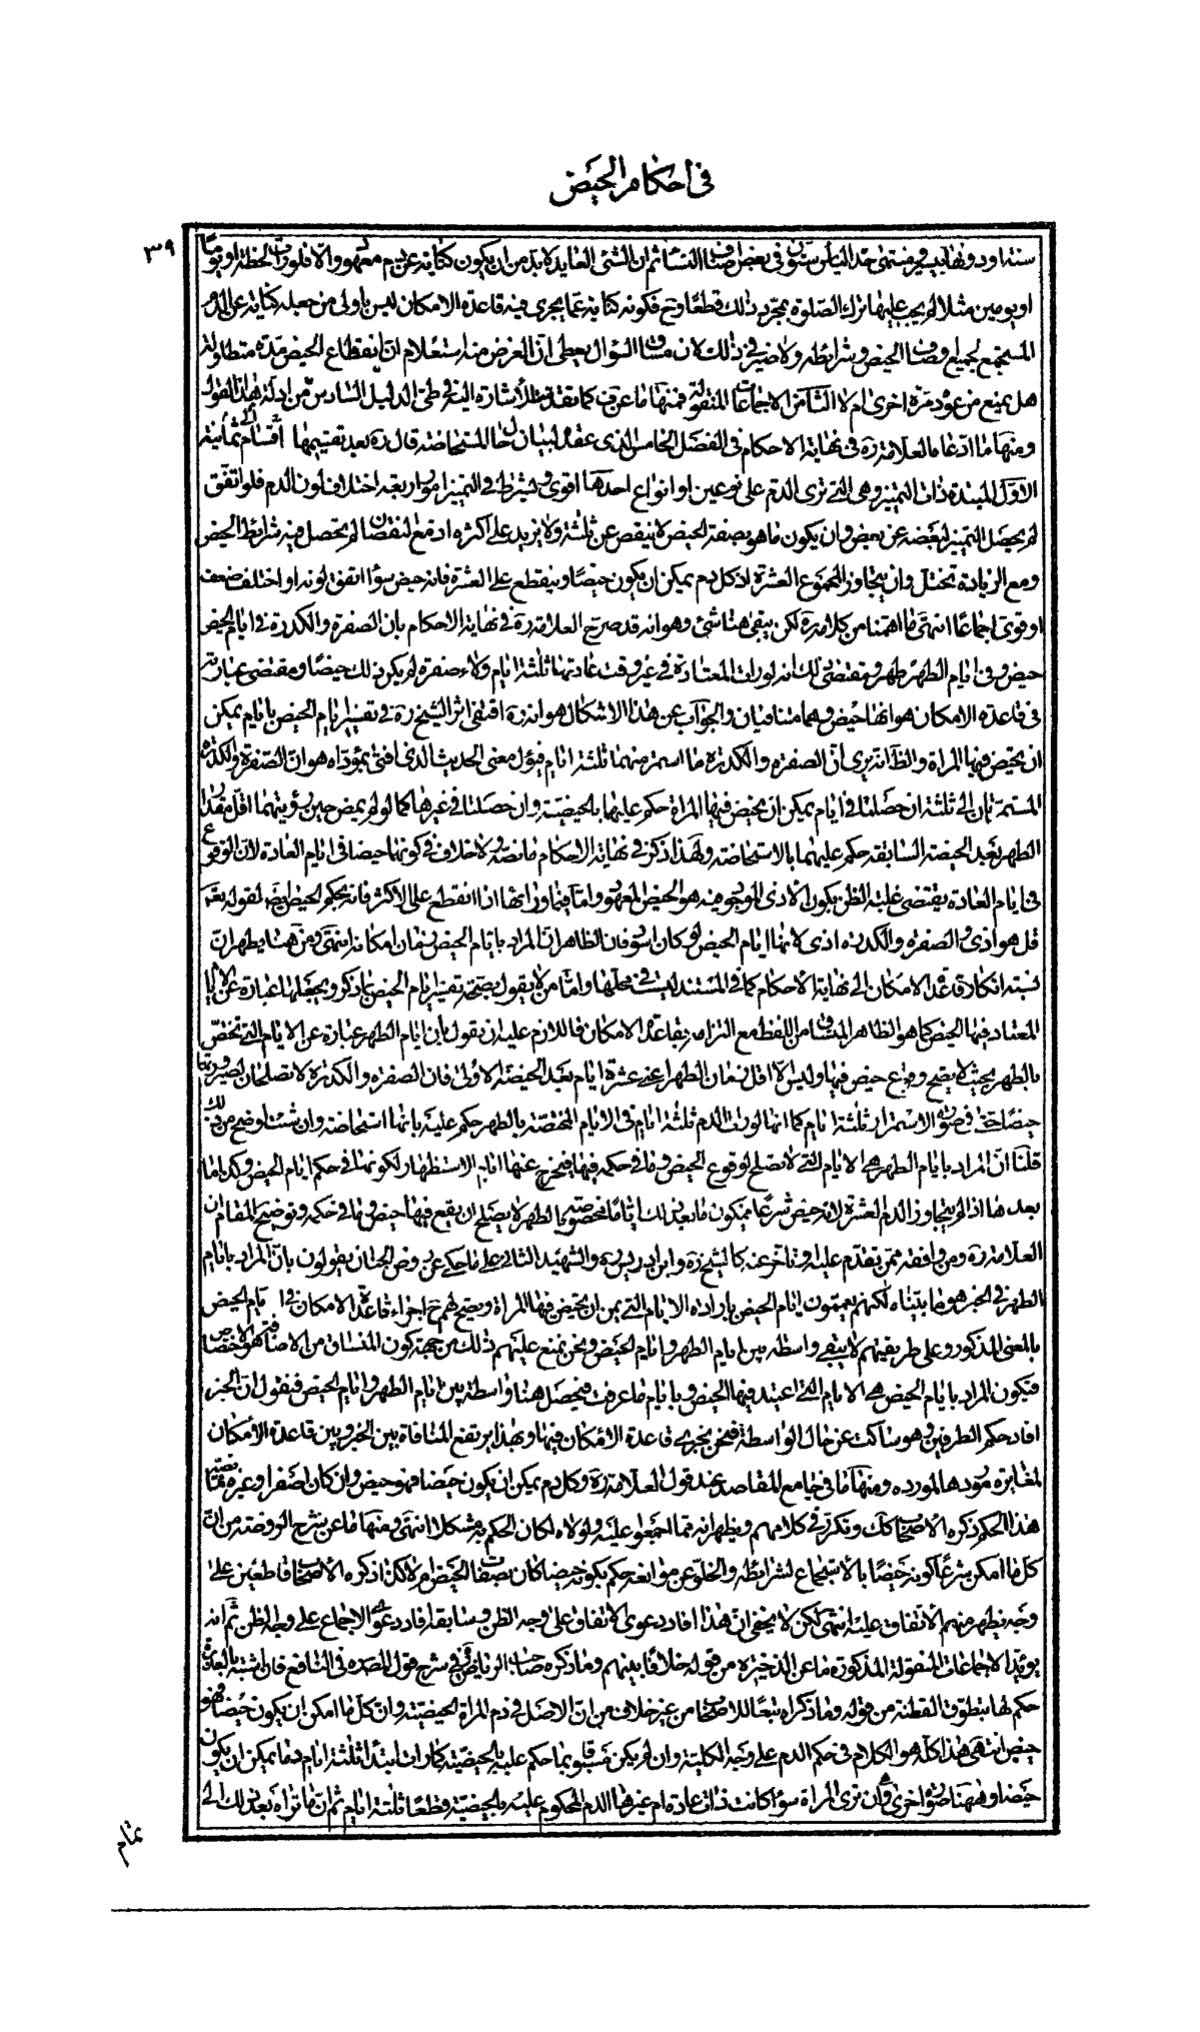 في احكام الحيض
٣٩
سنة او دونها فيه منتهى حد اليأس ستون في بعض اصناف النساء ثم ان الشئ العايد لابد من ان يكون كناية عن دم معهود والا فلو رأت لحظة او يوما
او يومين مثلا لم يجب عليها ترك الصلوة بمجرد ذلك قطعا وح فكونه كناية عما يجرى فيه قاعدة الامكان ليس باولى من جعله كناية عن الدم
المستجمع لجميع اوصاف الحيض وشرائطه ولا ضير في ذلك لان مساق السؤال يعطى ان الغرض منه استعلام ان انقطاع الحيض مدة متطاولة
هل يمنع من عوده مرة اخرى ام لا الثامن الاجماعات المنقولة فمنها ما عرفت كما تقدمت الاشارة اليه في طى الدليل السادس من ادلة هذا القول
ومنها ما ادعاه العلامة ره في نهاية الاحكام في الفصل الخامس الذى عقده لبيان حال المستحاضة قال ره بعد تقسيمها الى اقسام ثمانية
الاول المبتدئة ذات التميز وهى التي ترى الدم على نوعين او انواع احدها اقوى ويشترط في التميز امور اربعة اختلاف لون الدم فلو اتفق
لم يحصل التميز لبعضه عن بعض وان يكون ما هو بصفة الحيض لا ينقص عن ثلثة ولا يزيد على اكثره اذ مع النقصان لم يحصل فيه شرائط الحيض
ومع الزيادة تختل وان يتجاوز المجموع العشرة اذ كل دم يمكن ان يكون حيضا وينقطع على العشرة فانه حيض سواء اتفق لونه او اختلف ضعف
او قوى اجماعا انتهى ما اهمنا من كلامه ره لكن يبقى هنا شئ وهو انه قد صرح العلامة ره في نهاية الاحكام بان الصفرة والكدرة في ايام الحيض
حيض وفى ايام الطهر طهر ومقتضى ذلك انه لو رات المعتادة في غير وقت عادتها ثلثة ايام ولاء صفرة لم يكن ذلك حيضا ومقتضى عبارته
في قاعدة الامكان هو انها حيض وهما متنافيان والجواب عن هذا الاشكال هو انه ره اقتفى اثر الشيخ ره في تفسير ايام الحيض بايام يمكن
ان تحيض فيها المراة والظ انه يرى ان الصفرة والكدرة ما استمر منهما ثلثة ايام فيؤل معنى الحديث الذى افتى بمؤداه هو ان الصفرة والكدرة
المستمرتان الى ثلثة ان حصلتا في ايام يمكن ان تحيض فيها المراة حكم عليها بالحيضية وان حصلتا في غيرها كما لو لم يمض حين رؤيتهما اقل مقدار
الطهر بعد الحيضة السابقة حكم عليهما بالاستحاضة ولهذا ذكر في نهاية الاحكام ما نصه ولا خلاف في كونها حيضا في ايام العادة لان الوقوع
في ايام العادة يقتضى غلبة الظن بكون الاذى الموجود فيه هو الحيض المعهود واما فيما وراءها اذا انقطع على الاكثر فانه بحكم الحيض ايضا لقوله تعالى
قل هو اذى والصفرة والكدرة اذى لانها ايام الحيض لو كان اسود فان الظاهر ان المراد بايام الحيض زمان امكانه انتهى ومن هنا يظهر ان
نسبة انكار قاعدة الامكان الى نهاية الاحكام كما في المستند ليست في محلها واما من لا يقول بصحة تفسير ايام الحيض بما ذكر ويجعلها عبارة عن الايام
المعتاد فيها الحيض كما هو الظاهر المنساق من اللفظ مع التزامه بقاعدة الامكان فاللازم عليه ان يقول بان ايام الطهر عبارة عن الايام التي تختص
بالطهر بحيث لا يصح وقوع حيض فيها وليس الا اقل زمان الطهر اعنى عشرة ايام بعد الحيضة الاولى فان الصفرة والكدرة لا تصلحان لصيرورتها
حيضا حتى في صورة الاستمرار ثلثة ايام كما انها لو رات الدم ثلثة ايام في الايام المختصة بالطهر حكم عليه بانها استحاضة وان شئت اوضح من ذلك
قلنا ان المراد بايام الطهر هى الايام التي لا تصلح لوقوع الحيض وما في حكمه فيها فيخرج عنها ايام الاستظهار لكونها في حكم ايام الحيض وكذا ما
بعدها اذا لم يتجاوز الدم العشرة لانه حيض شرعا فيكون ما بعد ذلك اياما مخصوصة بالطهر لا يصلح ان يقع فيها حيض وما في حكمه وتوضيح المقام ان
العلامة ره ومن وافقه ممن تقدم عليه او تاخر عنه كالشيخ ره وابن ادريس ره والشهيد الثاني على ما حكى عن روض الجنان يقولون بان المراد بايام
الطهر في الخبر هو ما بيناه لكنهم يعممون ايام الحيض بارادة الايام التي يمكن ان تحيض فيها المراة ويصح لهم ح اجراء قاعدة الامكان في ايام الحيض
بالمعنى المذكور وعلى طريقتهم لا يبقى واسطة بين ايام الطهر وايام الحيض ونحن نمنع عليهم ذلك من جهة كون المنساق من الاضافة هو الاختصاص
فيكون المراد بايام الحيض هى الايام التي اعتيد فيها الحيض وبايام ما عرفت فيحصل هنا واسطة بين ايام الطهر وايام الحيض فنقول ان الخبر
افاد حكم الطرفين وهو ساكت عن حال الواسطة فنحن نجرى قاعدة الامكان فيها وبهذا يرتفع المنافاة بين الخبر وبين قاعدة الامكان
لمغايرة موردها لمورده ومنها ما في جامع المقاصد عند قول العلامة ره وكل دم يمكن ان يكون حيضا فهو حيض وان كان اصفر او غيره مما نصه
هذا الحكم ذكره الاصحاب كك وتكرر في كلامهم ويظهر انه مما اجمعوا عليه ولولاه لكان الحكم به مشكلا انتهى ومنها ما عن شرح الروضة من ان
كل ما امكن شرعا كونه حيضا بالاستجماع لشرائطه والخلو عن موانعه حكم بكونه حيضا كان بصفات الحيض ام لا كذا ذكره الاصحاب قاطعين على
وجه يظهر منهم الاتفاق عليه انتهى لكن لا يخفى ان هذا افاد دعوى الاتفاق على وجه الظن وسابقه افاد دعوى الاجماع على وجه الظن ثم انه
يؤيد الاجماعات المنقولة المذكورة ما عن الذخيرة من قوله خلافا بينهم وما ذكره صاحب الرياض في شرح قول المصنف ره في النافع فان اشتبه بالعذرة
حكم لها بتطوق القطنة من قوله وما ذكراه تبعا للاصحاب من غير خلاف من ان الاصل في دم المراة الحيضية وان كل ما امكن ان يكون حيضا فهو
حيض انتهى هذا كله هو الكلام في حكم الدم على وجه الكلية وان لم يكن مسبوقا بما حكم عليه بالحيضية كما رات ابتداء ثلثة ايام دما يمكن ان يكون
حيضا وههنا صورة اخرى وهى ان ترى المراة سواء كانت ذات عادة ام غيرها الدم المحكوم عليه بالحيضية قطعا ثلثة ايام ثم ان ما تراه بعد ذلك الى
تمام